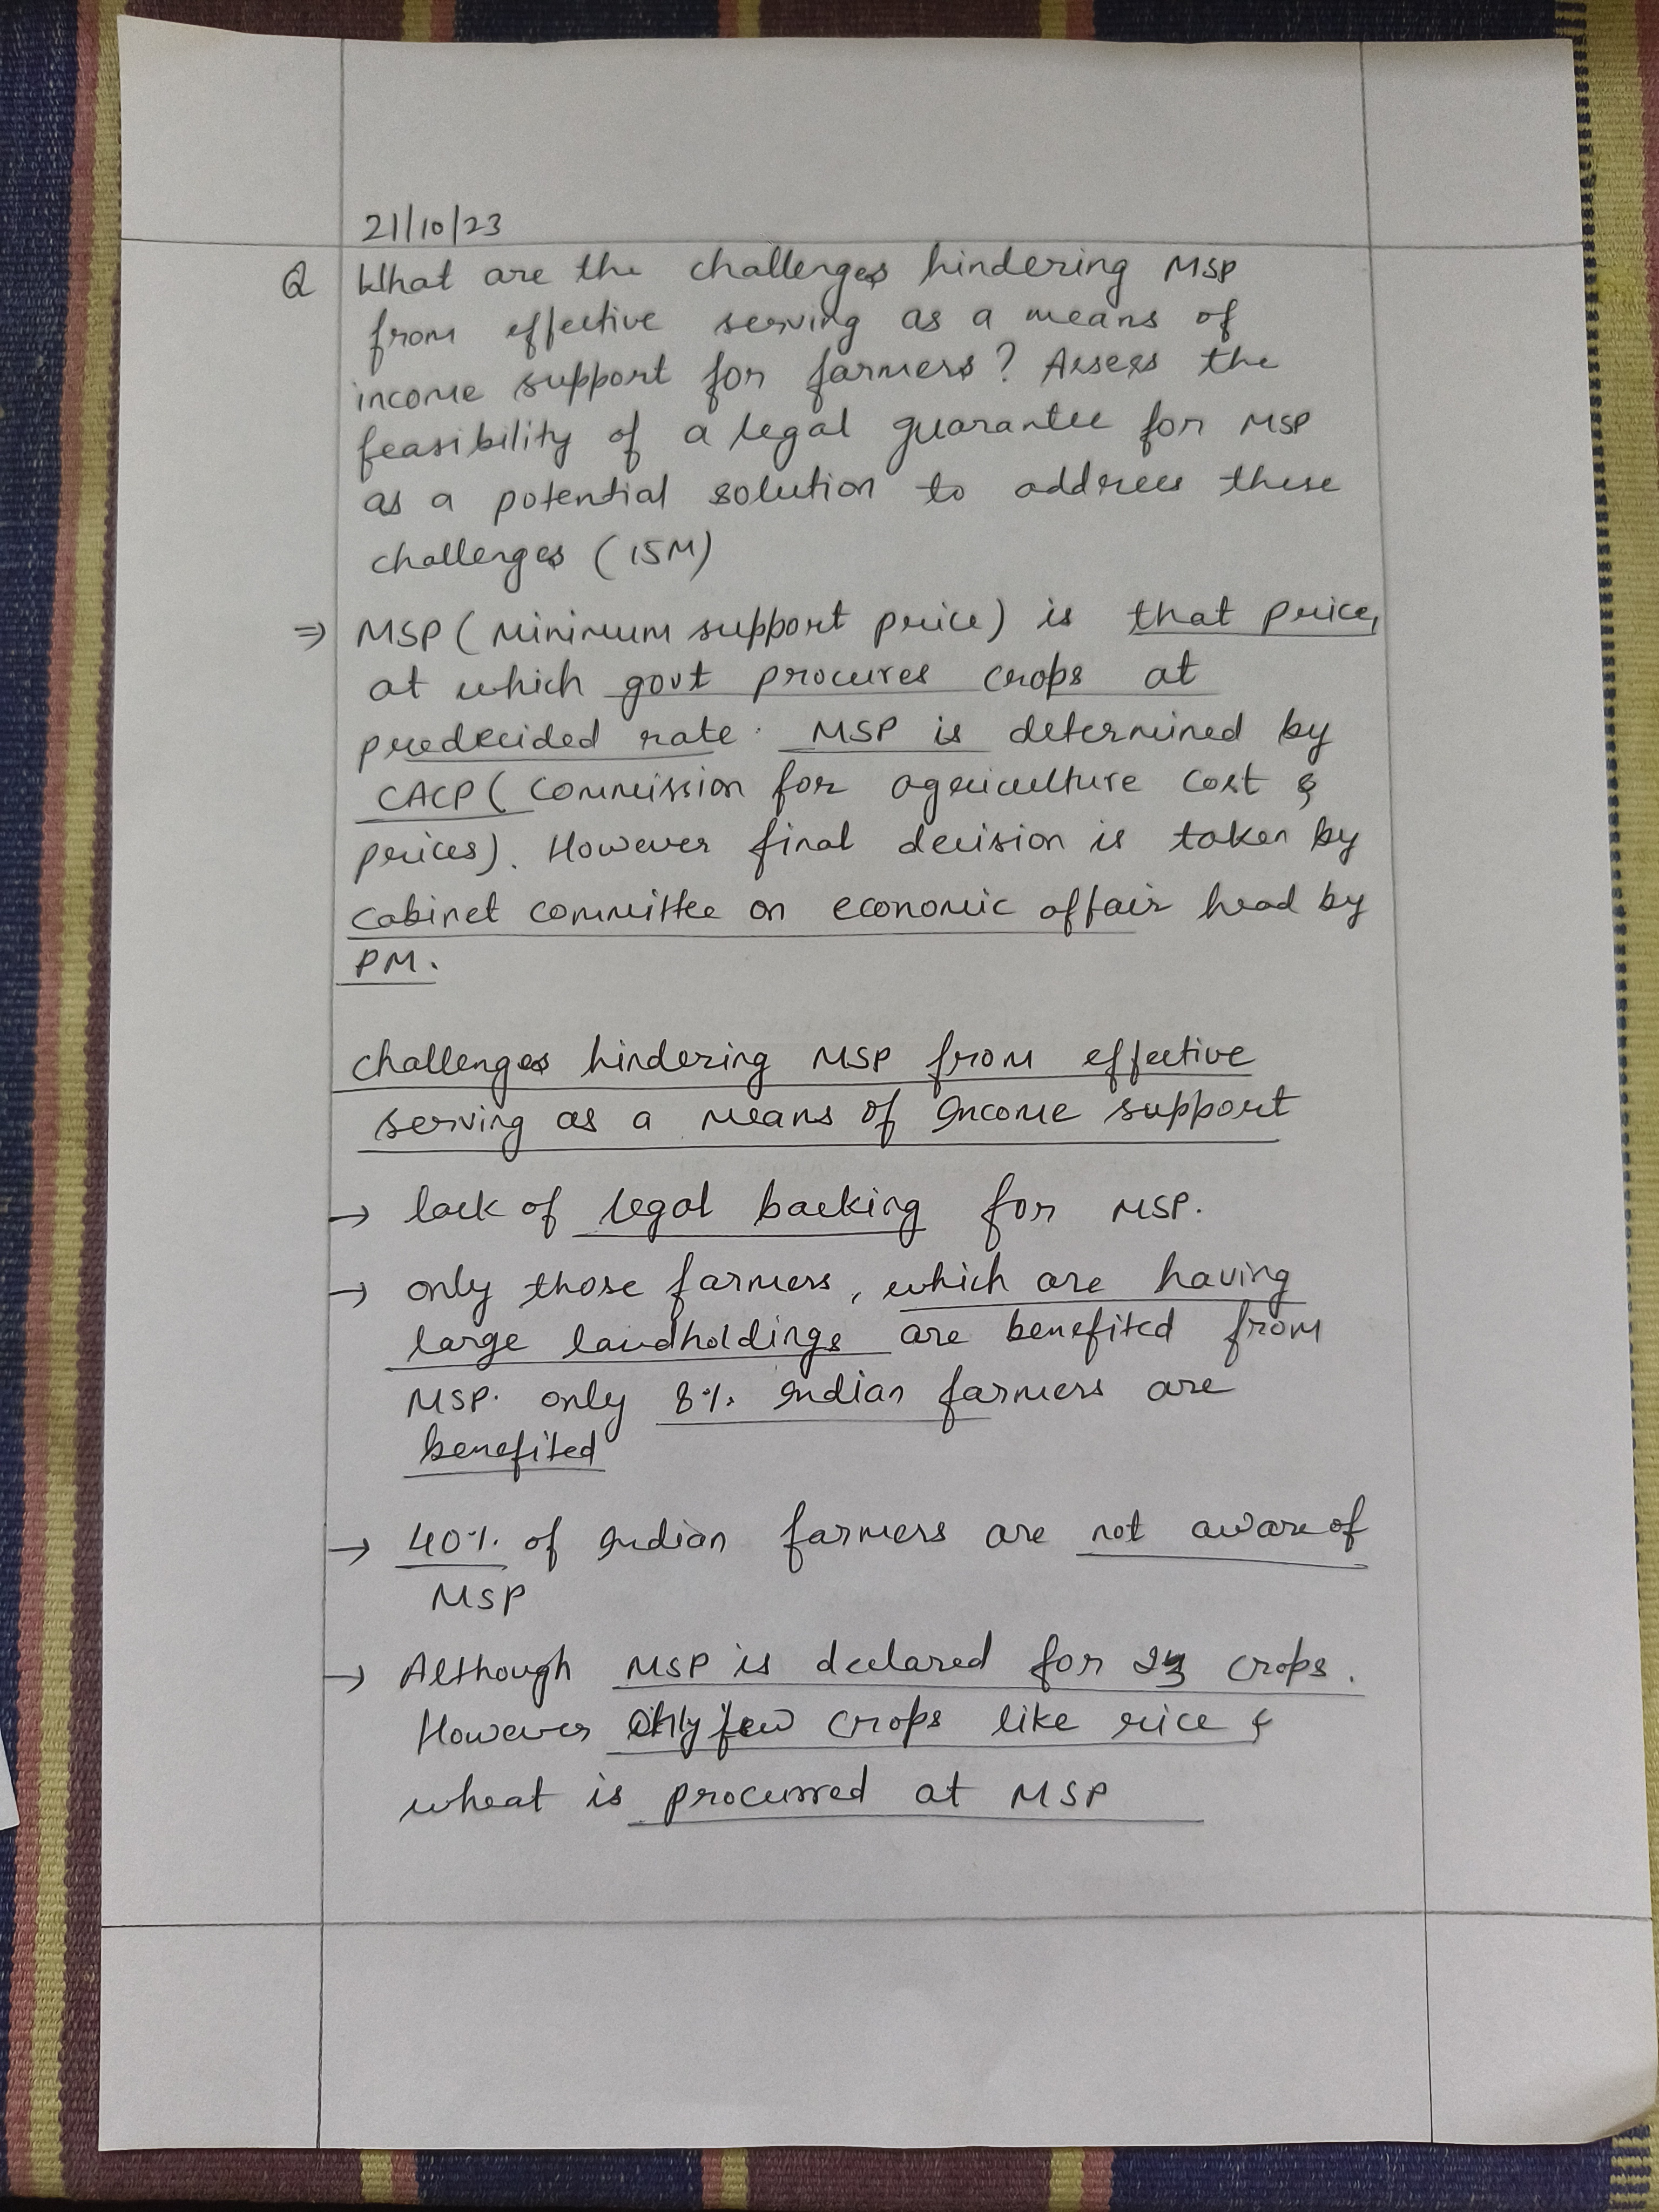 21/10/23
Q What are the challenges hindering MSP
from effective serving as a means of
income support for farmers? Assess the
feasibility of a legal guarantee for MSP
as a potential solution to address these
challenges (15M)
⇒ MSP (Minimum support price) is that price,
at which govt procures crops at
predecided rate. MSP is determined by
CACP (Commission for agriculture cost &
prices). However final decision is taken by
cabinet committee on economic affair head by
PM.
challenges hindering MSP from effective
serving as a means of Income support
→ lack of legal backing for MSP.
→ only those farmers, which are having
large landholdings are benefited from
MSP. only 8% Indian farmers are
benefited
→ 40% of Indian farmers are not aware of
MSP
→ Although MSP is declared for 23 crops.
However only few crops like rice &
wheat is procurred at MSP